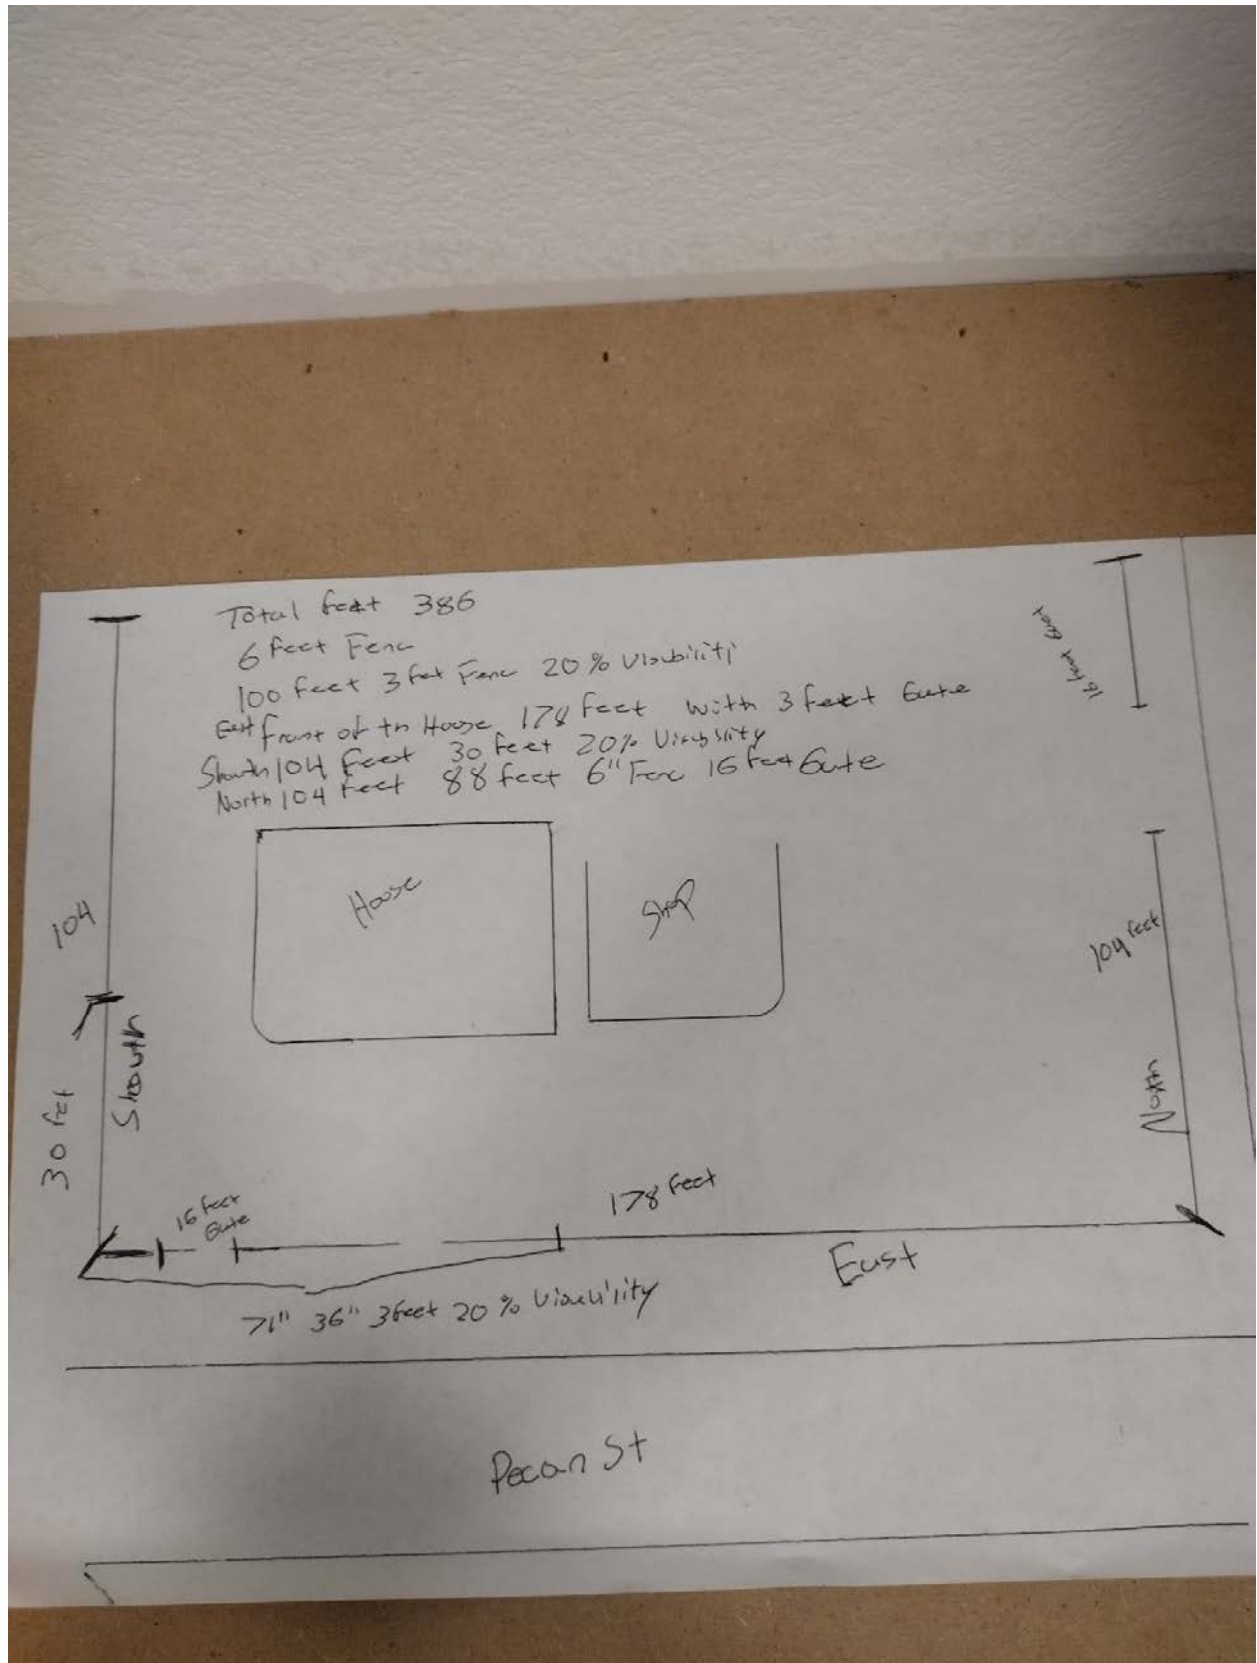 Total feet 386
6 feet Fenc
100 feet 3 fet Fenc 20% Visibiliti
East front of th House 178 feet with 3 feet Gate
Shouth 104 Feet 30 feet 20% Visibility
North 104 feet 88 feet 6" Fenc 16 feet Gate
16 feet Gate
House
Shop
104
104 feet
Shouth
30 feet
North
16 feet
Gate
178 feet
East
71" 36" 3 feet 20% Visibility
Pecan St